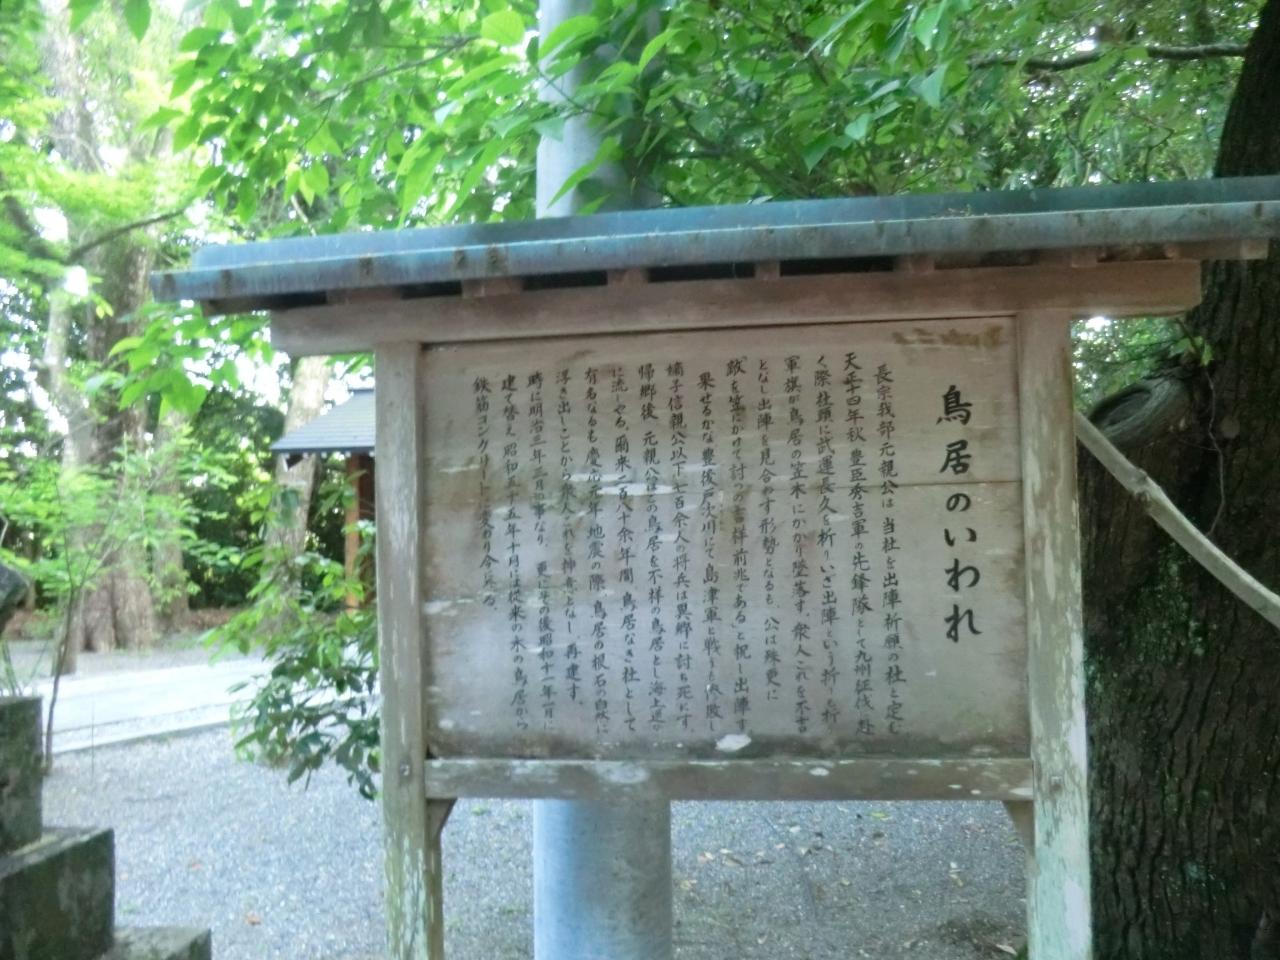 鳥居のいわれ
長宗我部元親公は 当社を出陣祈願の社と定む
天正十四年秋 豊臣秀吉軍の先鋒隊として九州征伐に赴
く際社頭に武運長久を祈りいざ出陣という折
軍旗が鳥居の笠木にかかり墜落す、衆人これを不吉
となし出陣を見合わす形勢となるも、公は殊更に
「敵を笠にかけて討つの吉祥前兆である」と祝し出陣す
果せるかな豊後戸次川にて島津軍と戦うも大敗し
嫡子信親公以下七百余人の将兵は異郷に討ち死にす、
帰郷後 元親公はこの鳥居を不祥の鳥居とし海上遥か
に流しやる、爾来二百八十余年間 鳥居なき社として
有名なるも慶応元年 地震の際 鳥居の根石の自然に
浮き出しことから衆人これを神意となし、再建す、
時に明治三年二月の事なり、更にその後昭和十一年一月に
建て替え 昭和五十五年十月には従来の木の鳥居から
鉄筋コンクリートに変わり今に